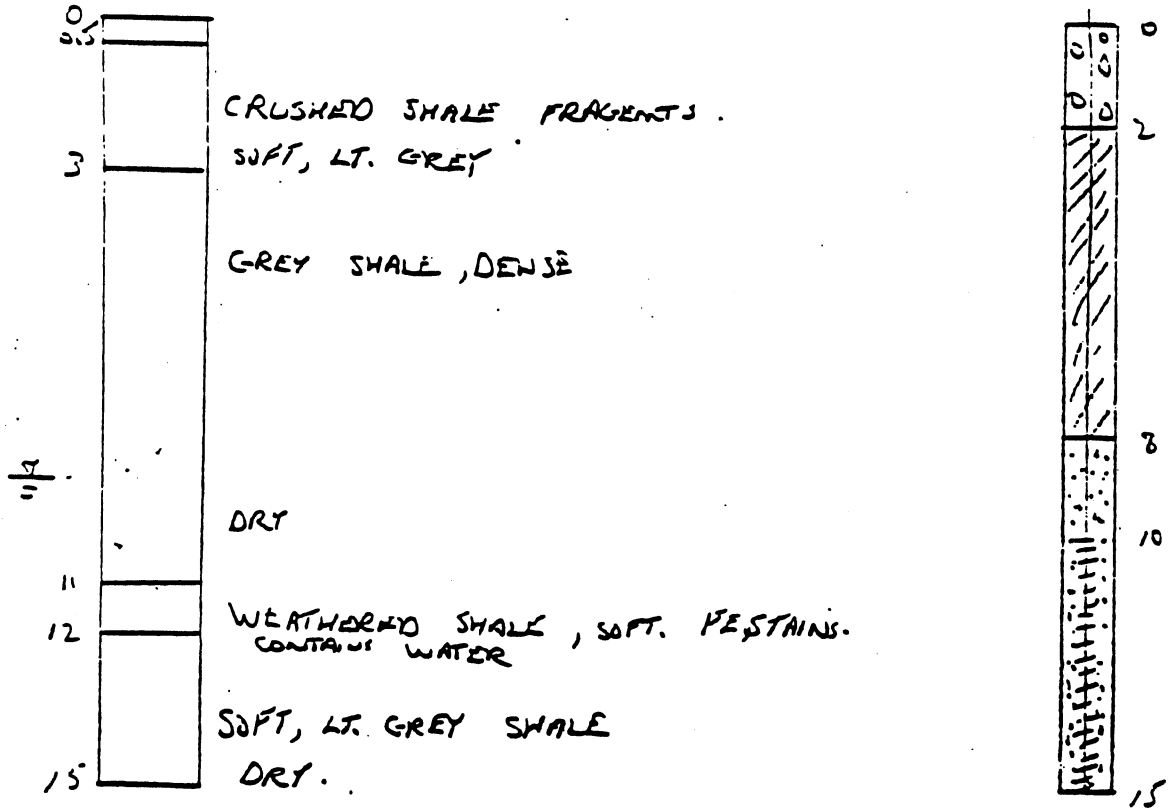 0
0.5
CRUSHED SHALE FRAGENTS.
SOFT, LT. GREY
3
GREY SHALE, DENSE
DRY
11
WEATHERED SHALE, SOFT. FE STAINS.
12
CONTAINS WATER
SOFT, LT. GREY SHALE
DRY.
15
0
2
8
10
15